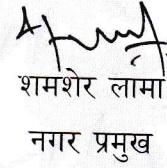 शमशेर लामा
नगर प्रमुख